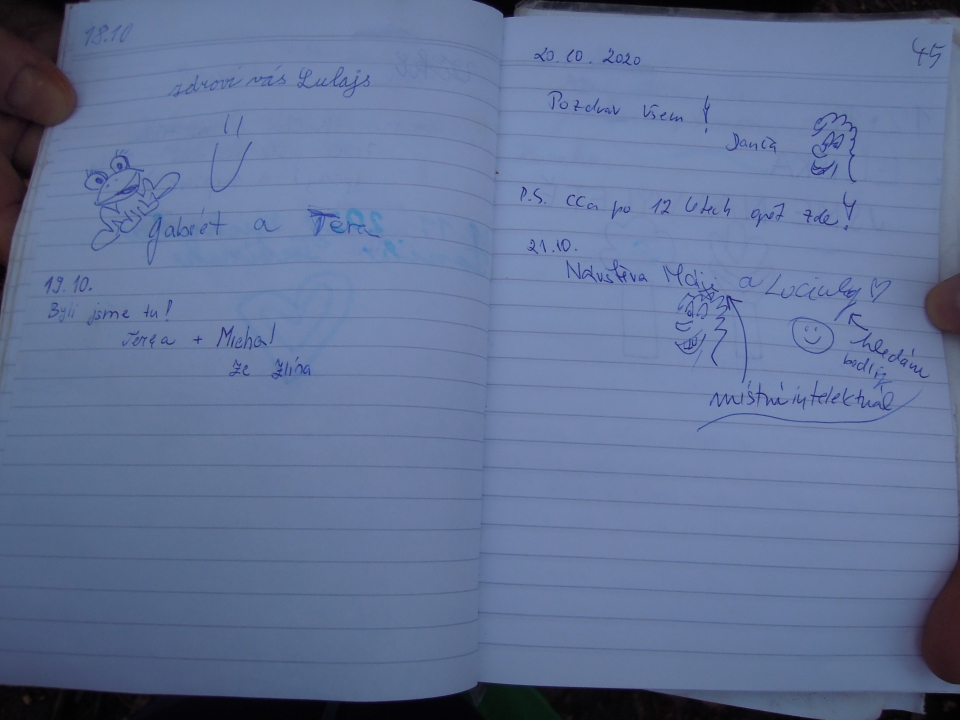 18.10
zdraví vás Lulajs
Gabriét a Tera
19.10.
Byli jsme tu!
Terča + Michal
ze Zlína
45
20.10.2020
Pozdrav všem!
Danča
P.S. cca po 12 letech opět zde!
21.10.
Návštěva Máji a
hledám
místní intelektuál